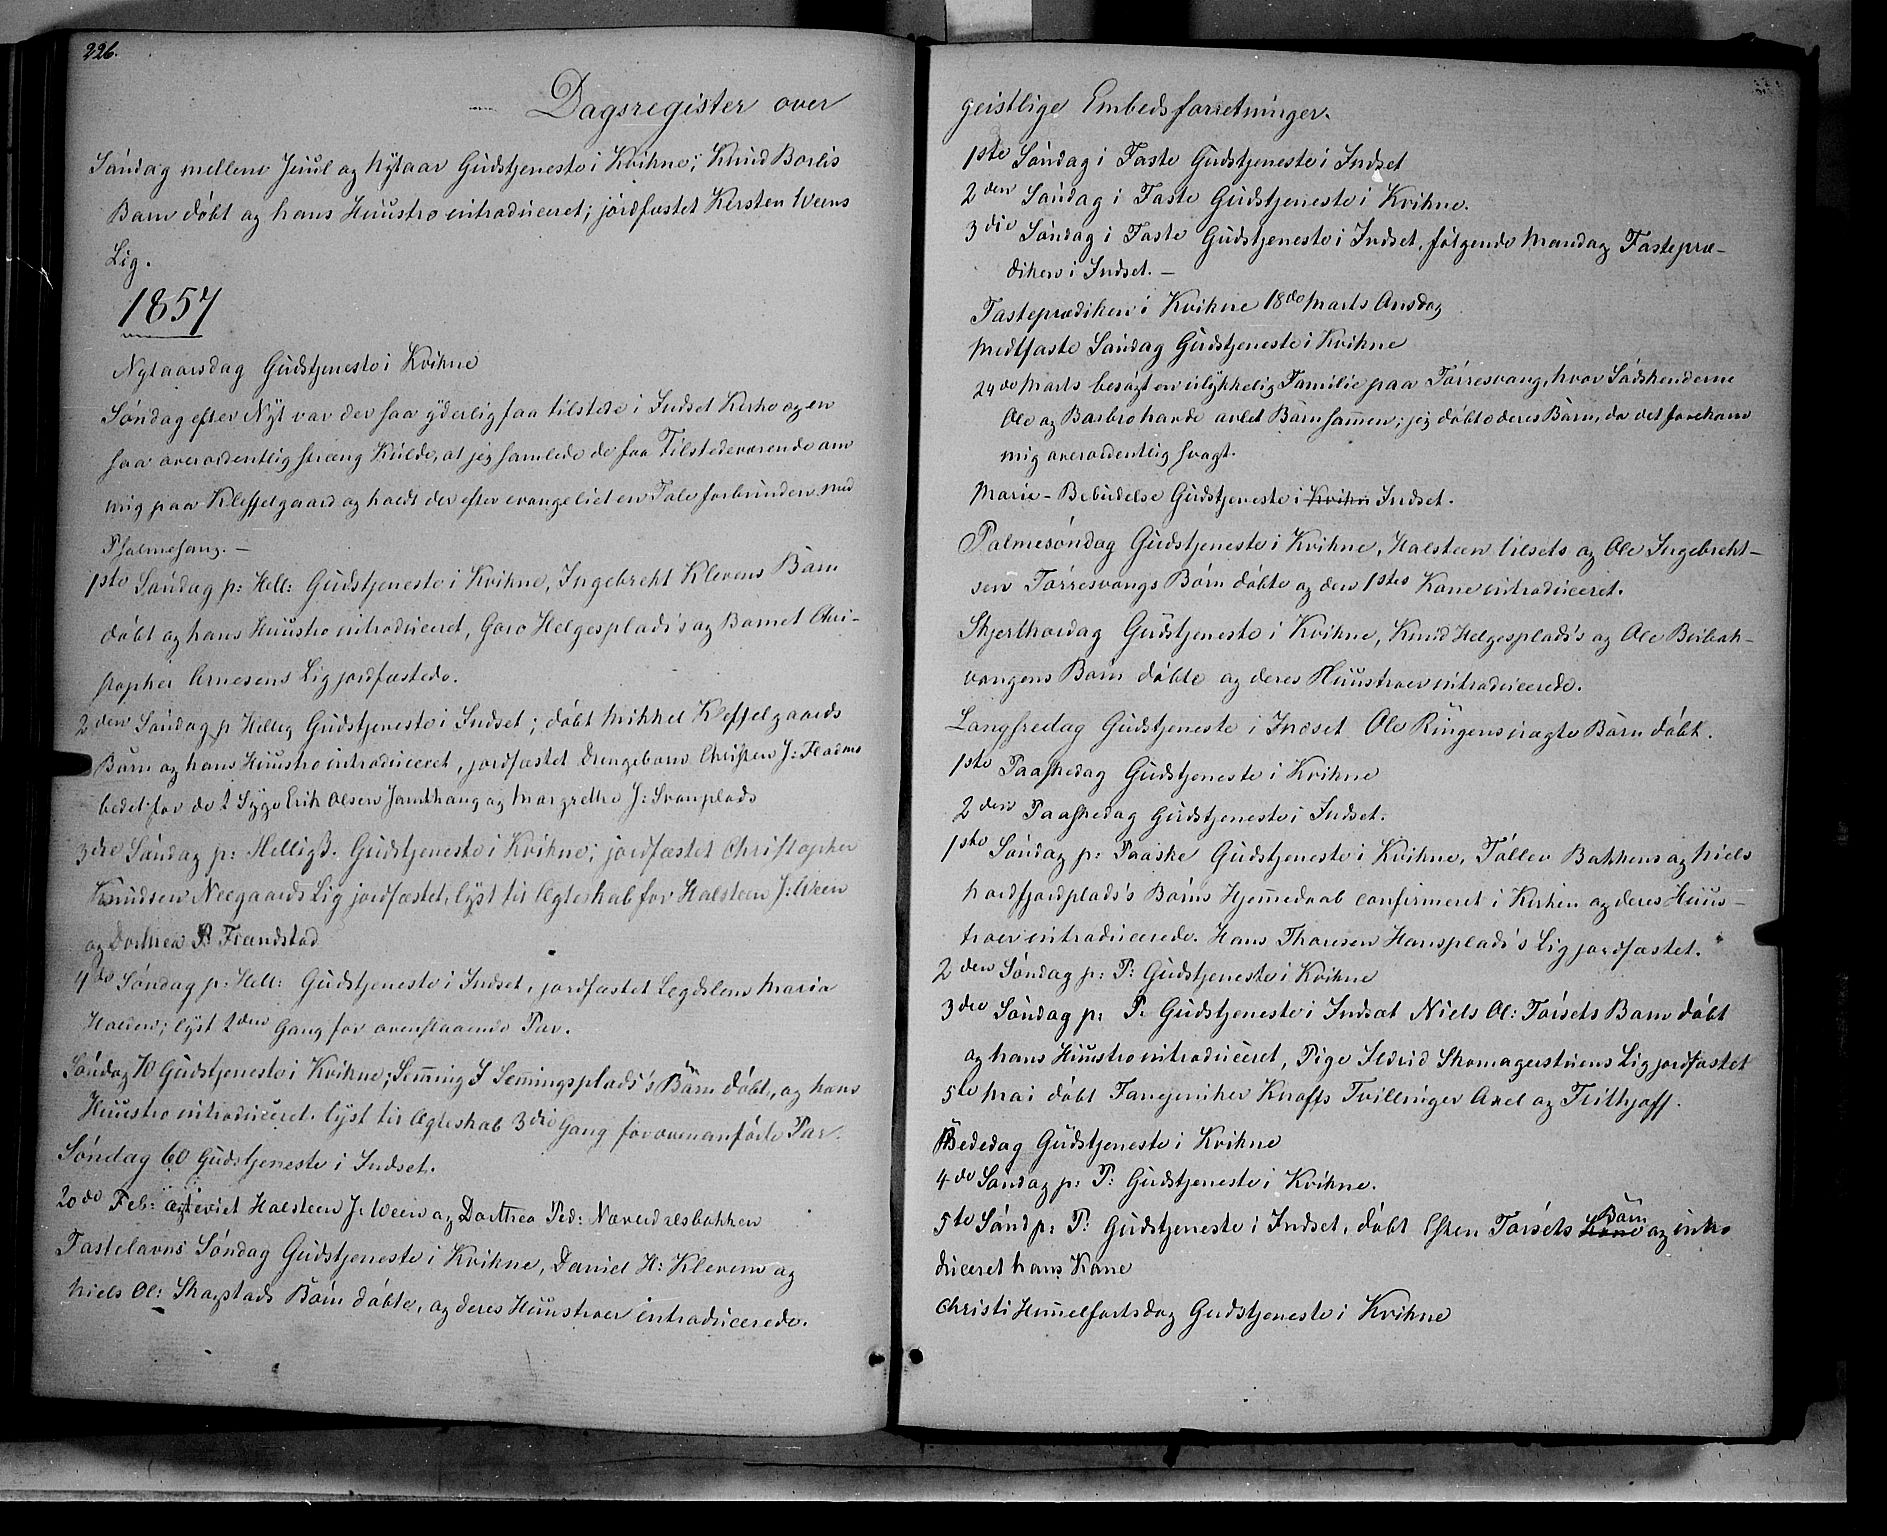 226.
Dagsregister over
Søndag mellem Juul og Nytaar Gudstjeneste i Kvikne; Knud Borlis
Barn døbt og hans Huustro introduceret; jordfæstet Kirsten Weens
Lig.
1857
Nytaarsdag Gudstjeneste i Kvikne
Søndag efter Nyt var der saa yderlig faa tilstede i Indset Kirke og en
saa overordentlig stræng Kulde, at jeg samlede de faa Tilstedeværende om
mig paa Kleffelgaard og holdt der efter evangeliet en Tale forbunden med
Psalmesang. —
1ste Søndag p: Hell: Gudstjeneste i Kvikne, Ingebreht Klevens Barn
døbt og hans Huustro introduceret, Goro Helgesplads's og Barnet Chri-
stopher Arnesens Lig jordfæstede.
2den Søndag p Hellig Gudstjeneste i Indset; døbt Mikkel Kleffelgaards
Barn og hans Huustro introduceret, jordfæstet Drengebarn Christen J: Floems
bedet for de 2 Syge Erik Olsen Jamthaug og Margrethe J: Svenplads
3die Søndag p: Helligt. Gudstjeneste i Kvikne; jordfæstet Christopher
Knudsen Neegaards Lig jordfæstet, lyst til Ægteskab for Halsteen J: Ween
og Dorthea P. Frendstad
4de Søndag p: Hell: Gudstjeneste i Indset, jordfæstet Legdslem Maria
Holden; lyst 2den Gang for ovenstaaende Par.
Søndag 70 Gudstjeneste i Kvikne; Semming S Semmingsplads's Barn døbt, og hans
Huustro introduceret. lyst til Ægteskab 3die Gang for ovenanførte Par.
Søndag 60 Gudstjeneste i Indset.
20de Feb: ægteviet Halsteen J: Ween og Dorthea Ped: Næverdalsbakken
Fastelavns Søndag Gudstjeneste i Kvikne, Daniel H: Klevens og
Niels Ol: Skogstads Børn døbte, og deres Huustroer introducerede.
geistlige Embedsforretninger.
1ste Søndag i Faste Gudstjeneste i Indset
2den Søndag i Faste Gudstjeneste i Kvikne.
3die Søndag i Faste Gudstjeneste i Indset, følgende Mandag Fastepræ-
diken i Indset. —
Fasteprædiken i Kvikne 18de Marts Onsdag
Midtfaste Søndag Gudstjeneste i Kvikne
24de Marts besøgt en ulykkelig Familie paa Tørresvang, hvor Sødskenderne
Ole og Barbro havde avlet Barn sammen; jeg døbte deres Barn, da det forekom
mig overordentlig svagt.
Marie-Bebudelse Gudstjeneste i Kvikn Indset.
Palmesøndag Gudstjeneste i Kvikne, Halsteen Uisets og Ole Ingebreht-
sen Tørresvangs Børn døbte og den 1stes Kone introduceret.
Skjerthordag Gudstjeneste i Kvikne, Knud Helgesplads's og Ole Beibak-
vangens Børn døbte og deres Huustroer introducerede.
Langfredag Gudstjeneste i Indset Ole Ringens uægte Barn døbt.
1ste Paaskedag Gudstjeneste i Kvikne
2den Paaskedag Gudstjeneste i Indset.
1ste Søndag p: Paaske Gudstjeneste i Kvikne, Tollev Bakkens og Niels
Nordfjordplads's Børns Hjemmedaab confirmeret i Kirken og deres Huus-
troer introducerede. Hans Thoresen Hansplads's Lig jordfæstet.
2den Søndag p: P: Gudstjeneste i Kvikne
3die Søndag p: P. Gudstjeneste i Indset Niels Ol: Torsets Barn døbt
og hans Huustro introduceret, Pige Ildrid Skomagerstuens Lig jordfæstet
5te Mai døbt Fangeniker Knoffs Tvillinger Axel og Frithjoff.
Bededag Gudstjeneste i Kvikne
4de Søndag p: P: Gudstjeneste i Kvikne.
5te Sønd p: P: Gudstjeneste i Indset, døbt Esten Torsets Kone Barn og intro
duceret hans Kone
Christi Himmelfartsdag Gudstjeneste i Kvikne